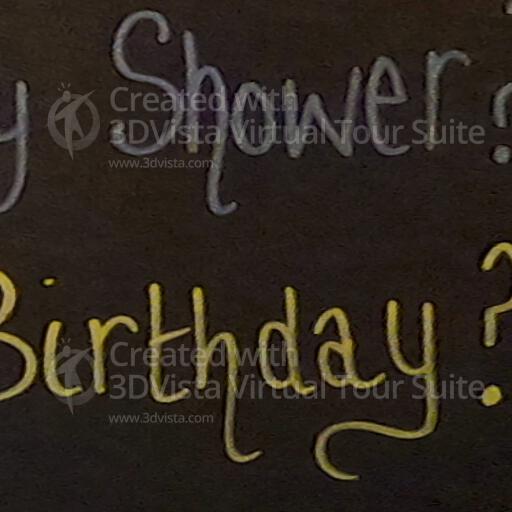 y Shower?
Created with
3DVista Virtual Tour Suite
www.3dvista.com
Birthday?
Created with
3DVista Virtual Tour Suite
www.3dvista.com